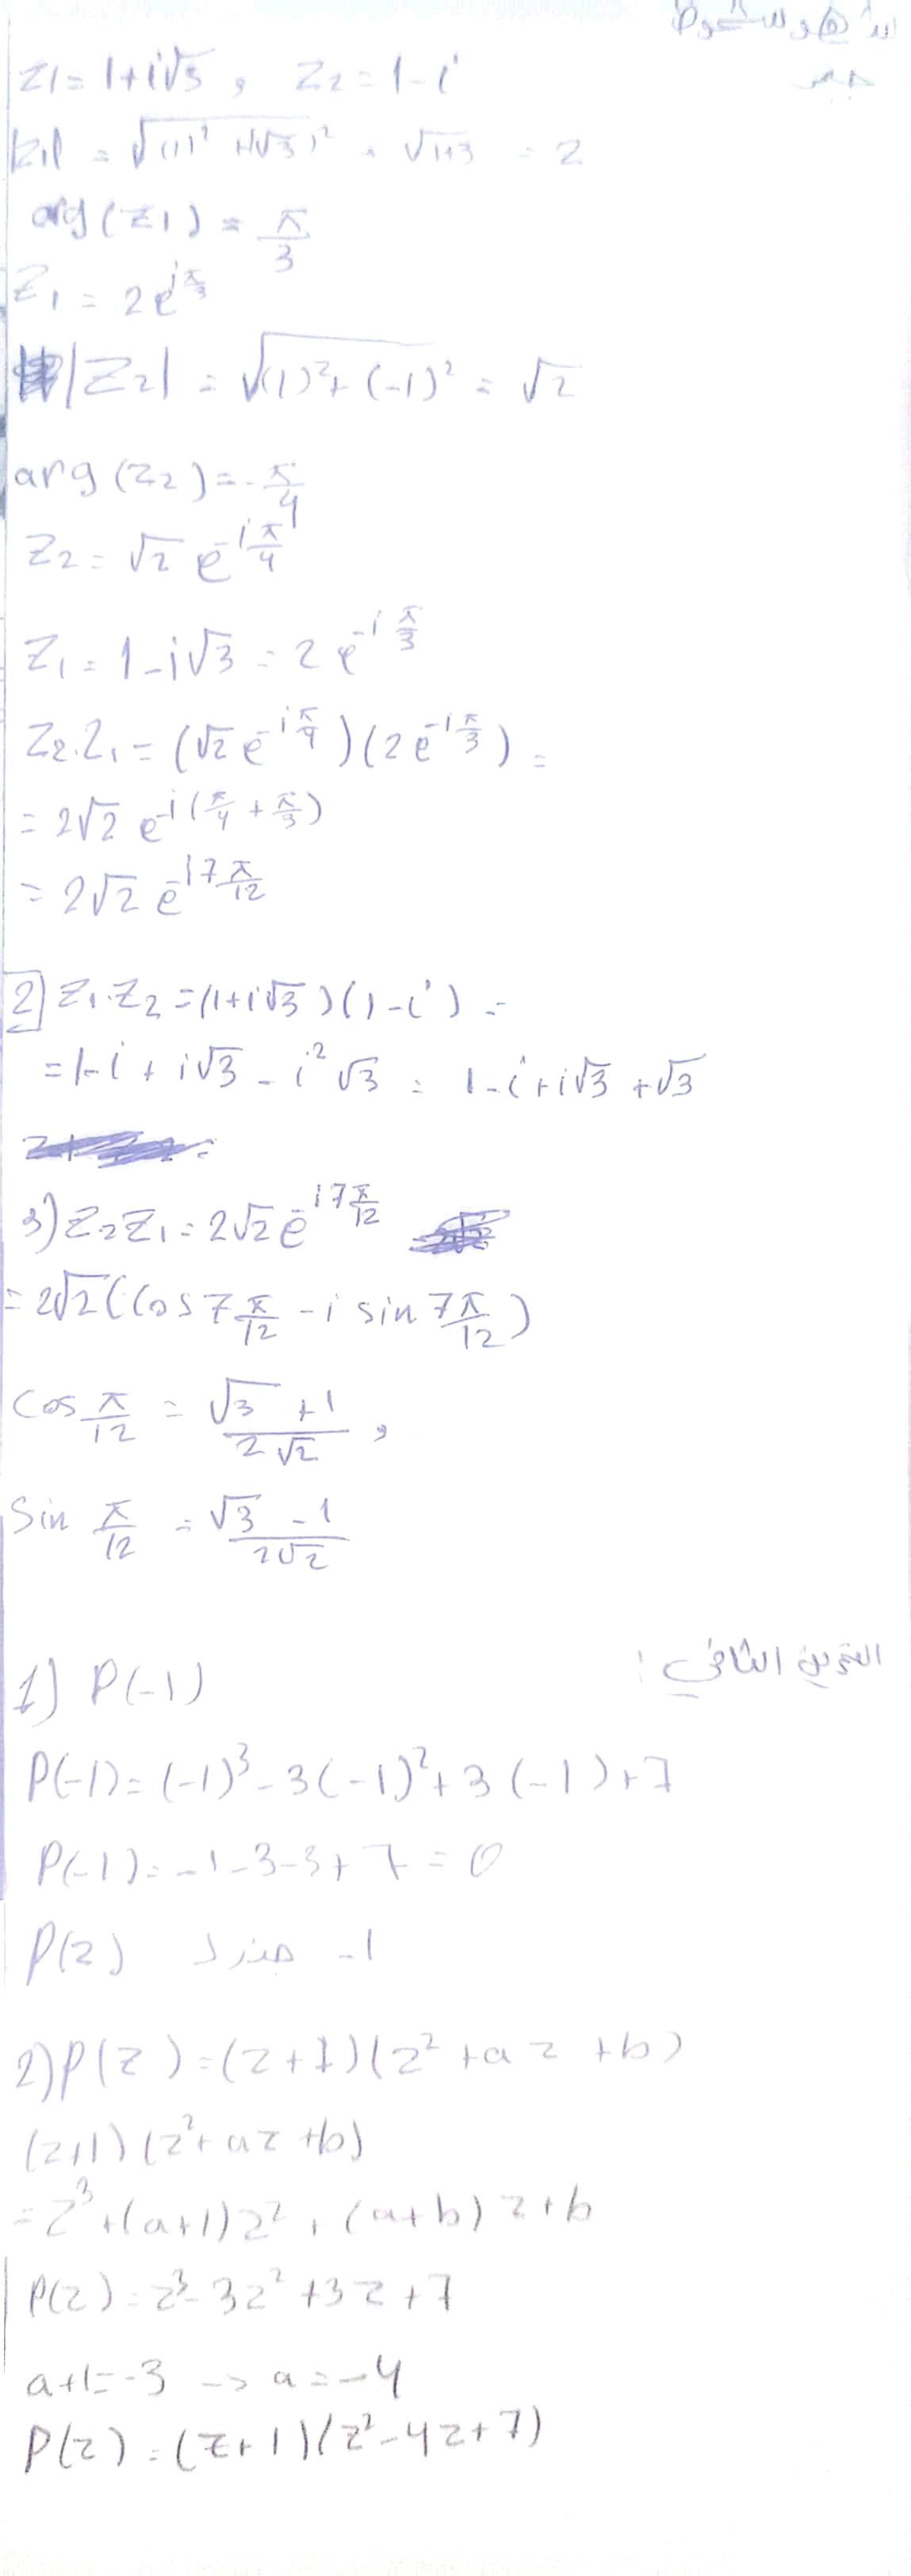 Z1 = 1+i√3 , Z2 = 1-i
|Z1| = √((1)² + (√3)²) = √1+3 = 2
arg(Z1) = π/3
Z1 = 2e^{iπ/3}
|Z2| = √((1)² + (-1)²) = √2
arg(Z2) = -π/4
Z2 = √2 e^{-iπ/4}
Z1 = 1-i√3 = 2e^{-iπ/3}
Z2.Z1 = (√2 e^{-iπ/4})(2e^{-iπ/3}) =
= 2√2 e^{-i(π/4 + π/3)}
= 2√2 e^{-i7π/12}
2] Z1.Z2 = (1+i√3)(1-i) =
= 1-i + i√3 - i²√3 = 1-i+i√3 +√3
3) Z2Z1 = 2√2 e^{-i7π/12}
= 2√2(Cos 7π/12 - i sin 7π/12)
Cos π/12 = (√3 +1)/(2√2) ,
Sin π/12 = (√3 -1)/(2√2)
التمرين الثاني :
1) P(-1)
P(-1) = (-1)³ - 3(-1)² + 3(-1) + 7
P(-1) = -1-3-3+7 = 0
-1 جذر لـ P(z)
2) P(z) = (z+1)(z² + az + b)
(z+1)(z² + az + b)
= z³ + (a+1)z² + (a+b)z + b
P(z) = z³ - 3z² + 3z + 7
a+1 = -3 -> a = -4
P(z) = (z+1)(z² - 4z + 7)